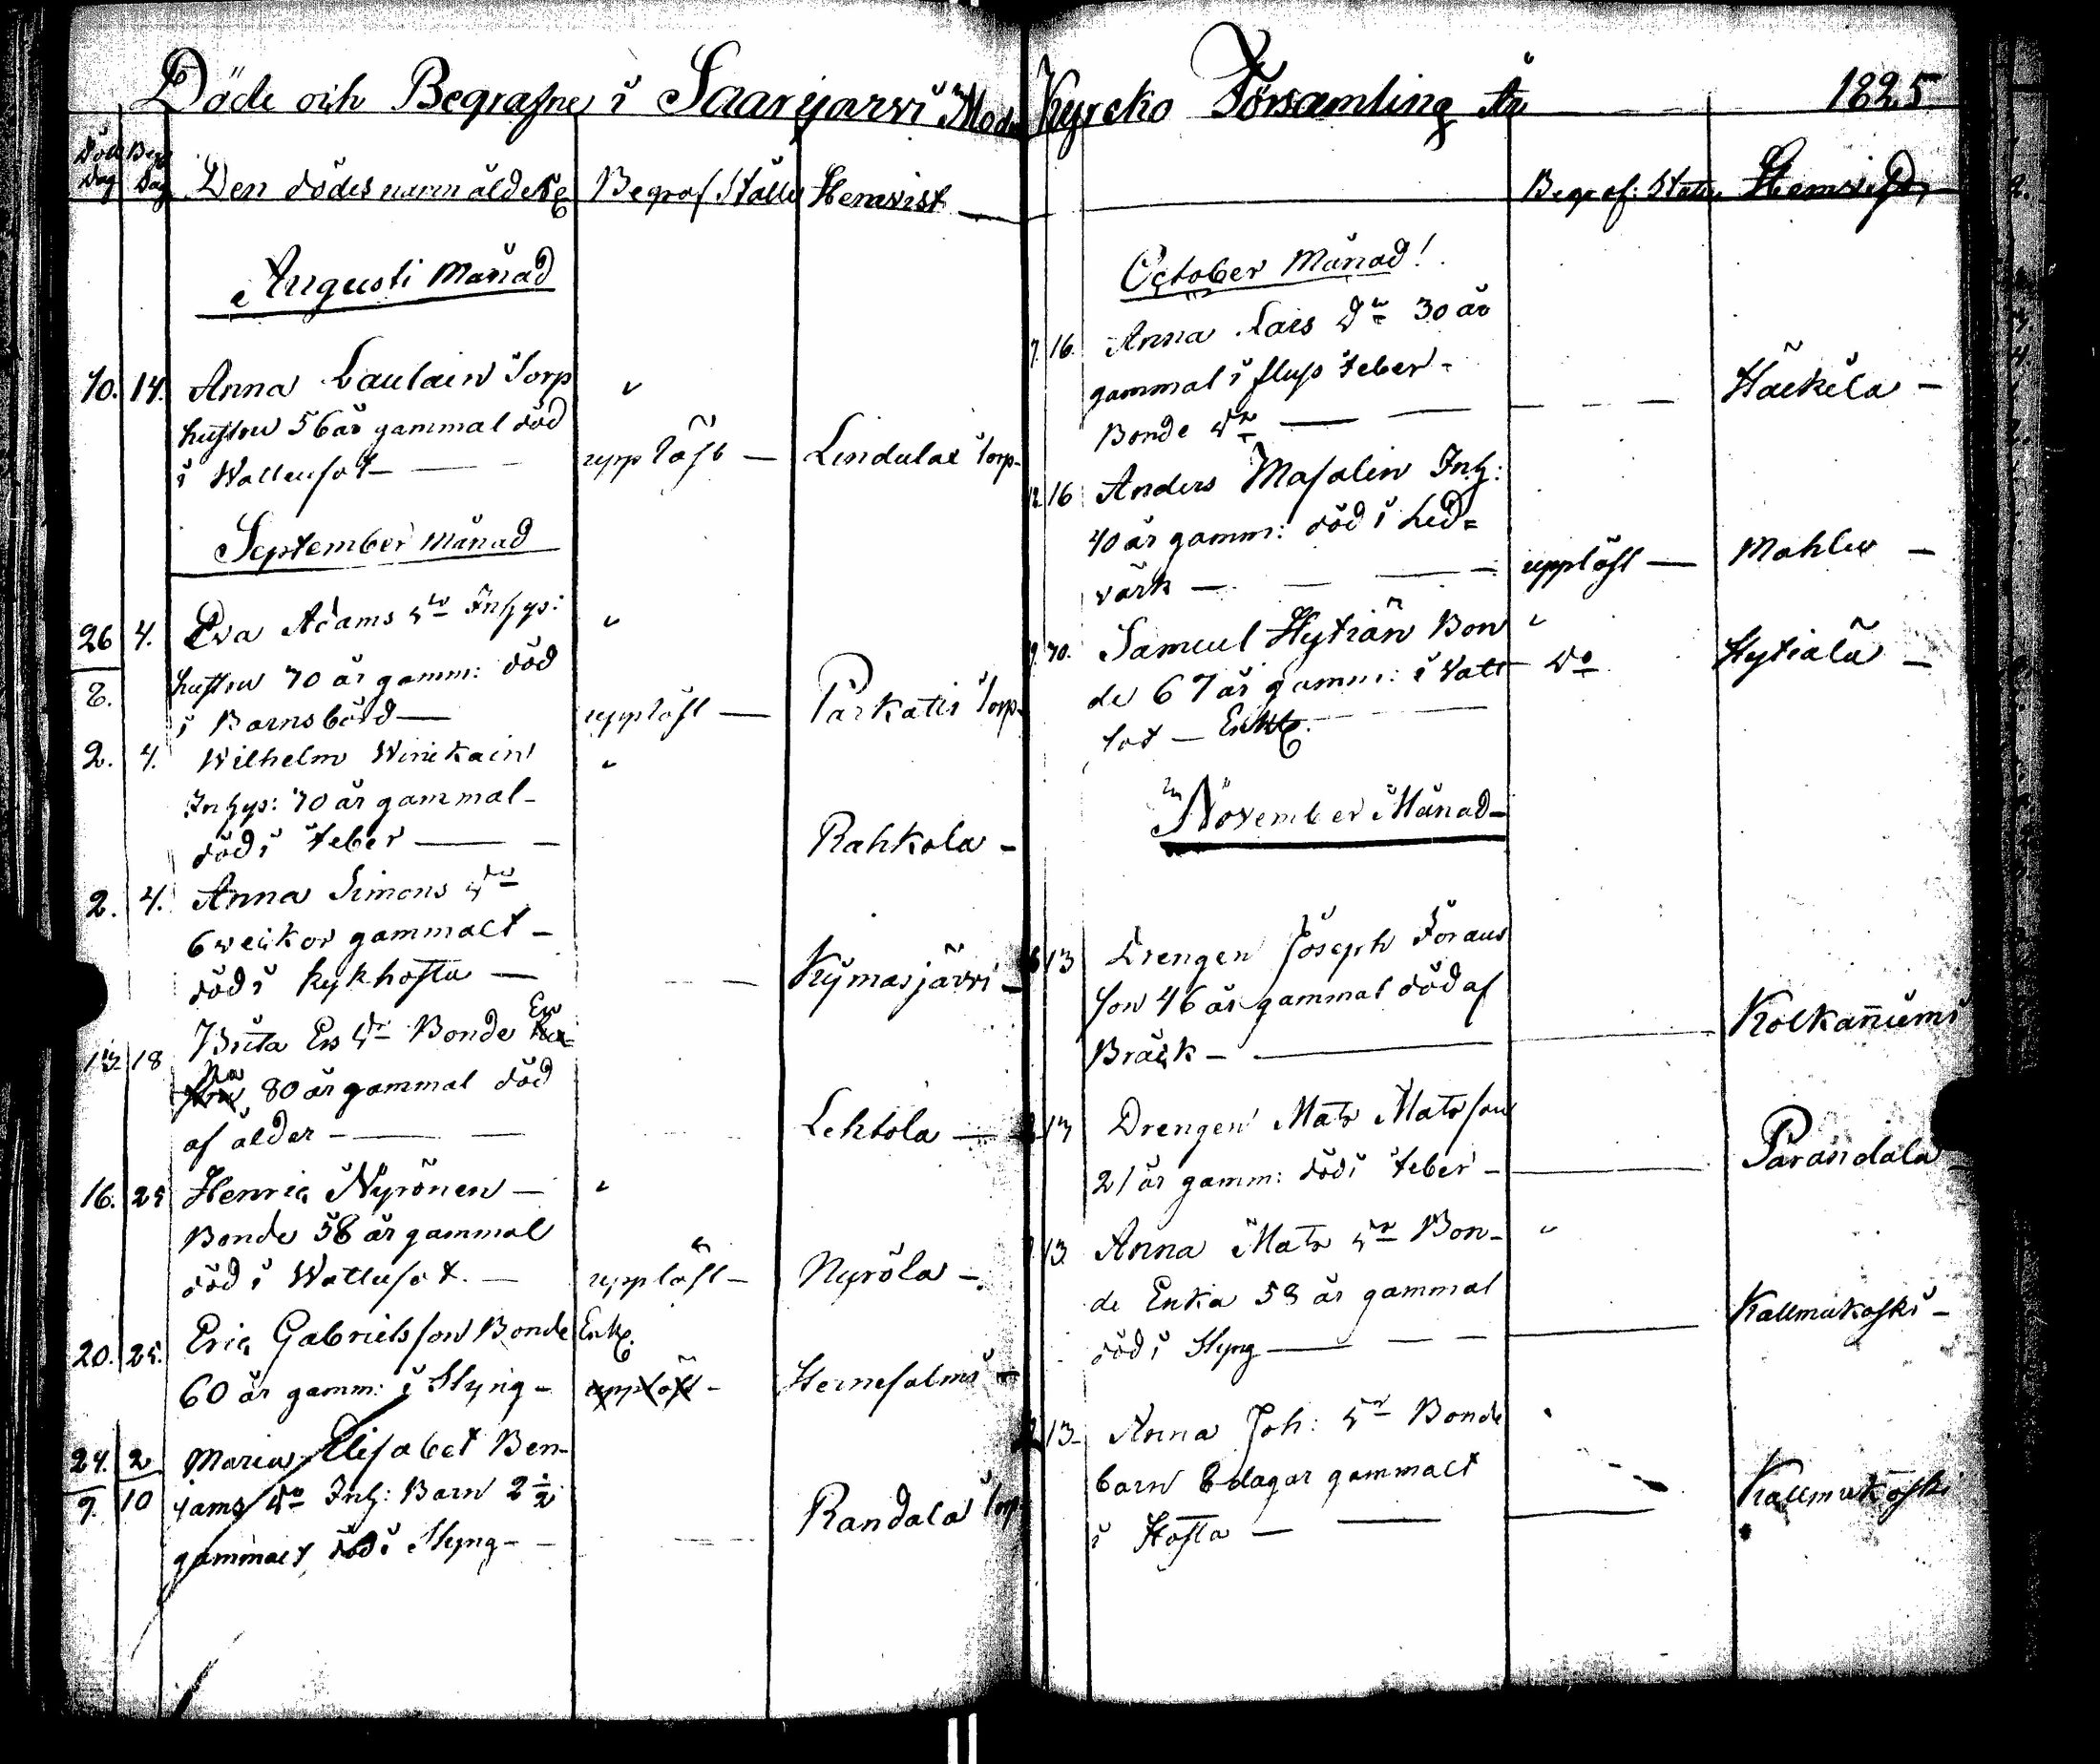 Döde och Begrafne i Saarijarvi Moder Kyrcko Församling År 1825
Död Dag Begr Dag Den dödes namn ålder &c Begraf Ställe Hemvist
Augusti Månad
10. 14. Anna Laulain Torp
hustru 56 år gammal död
i Wattusot — upplöst — Lindulax Torp
September Månad
26 4. Eva Adams Dr Inhys:
8. hustru 70 år gamm: död
i Barnsbörd — upplöst — Parkatti Torp
2. 4. Wilhelm Winikain
Inhys: 70 år gammal
död i feber — Rahkola
2. 4. Anna Simons Dr
6 weckor gammalt
död i kykhosta — Kymäsjärvi
13 18 Brita Ers Dr Bonde En
ka 80 år gammal död
af ålder — Lehtola
16. 25 Henric Nyrönen
Bonde 58 år gammal
död i Wattusot. — upplöst — Nyrölä
20. 25. Eric Gabrielsson Bonde Enkl.
60 år gamm: i Styng — upplöst — Hernesalmi
24. 2 Maria Elisabet Ben-
9. 10 jams Dr Inh: Barn 2 1/2
gammalt, död i Styng — Randala Torp
Begraf: Ställe Hemvist
October Månad!
7. 16. Anna Lars Dr 30 år
gammal i fluss feber
Bonde Dr — Häckilä
12 16 Anders Masalin Inh:
40 år gamm: död i Led=
värk — upplöst — Mahlu
9. 30. Samuel Hytiän Bon
de 67 år gamm: i Vatt Do Hytiälä
sot — Enkl.
November Månad
6 13 Drengen Joseph Johans
son 46 år gammal död af
Bråck — Kolkanniemi
13 Drengen Mats Matsson
21 år gamm: död i feber — Parandala
13 Anna Mats Dr Bon-
de Enka 58 år gammal
död i Styng — Kallmukoski
13 Anna Joh: Dr Bonde
barn 8 dagar gammalt
i Hosta — Kallmukoski